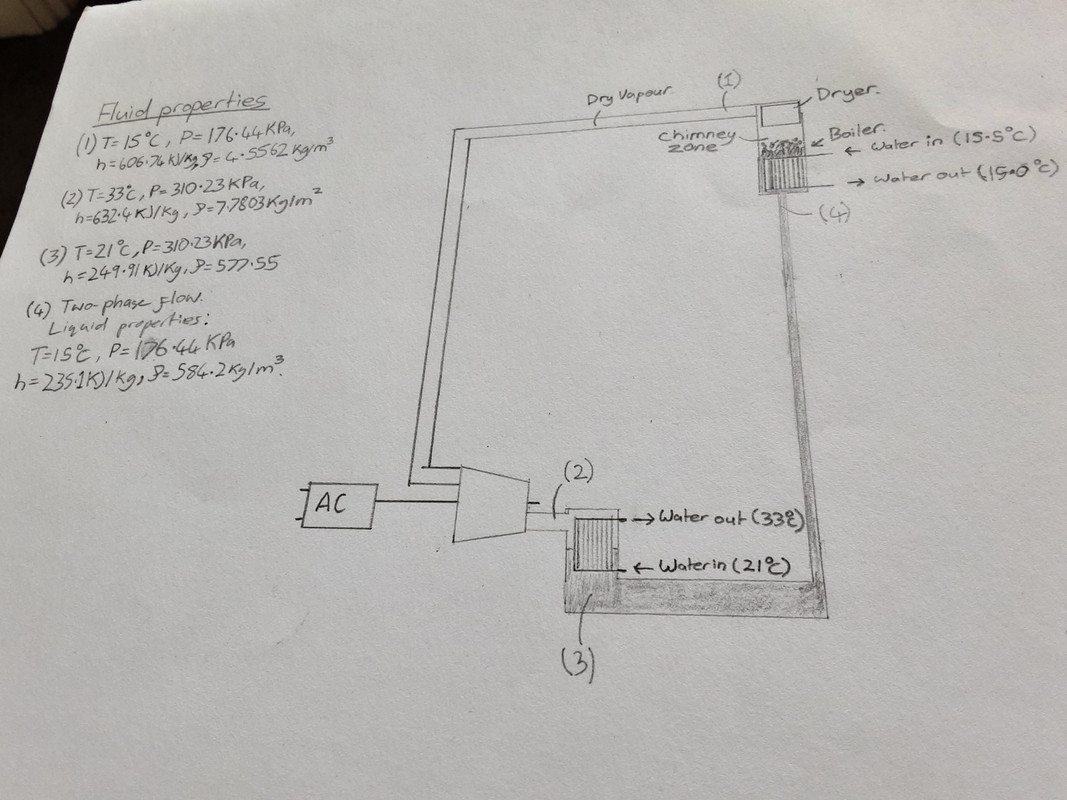 Fluid properties
(1) T=15°C, P=176.44KPa,
h=606.74KJ/Kg, ρ=4.5562Kg/m³
(2) T=33°C, P=310.23KPa,
h=632.4KJ/Kg, ρ=7.7803Kg/m²
(3) T=21°C, P=310.23KPa,
h=249.91KJ/Kg, ρ=577.55
(4) Two-phase flow.
Liquid properties:
T=15°C, P=176.44KPa
h=235.1KJ/kg, ρ=584.2Kg/m³.
(1)
Dry Vapour
Dryer.
chimney
zone
Boiler.
← Water in (15.5°C)
→ Water out (15.0°C)
(4)
AC
(2)
→ Water out (33°C)
← Water in (21°C)
(3)